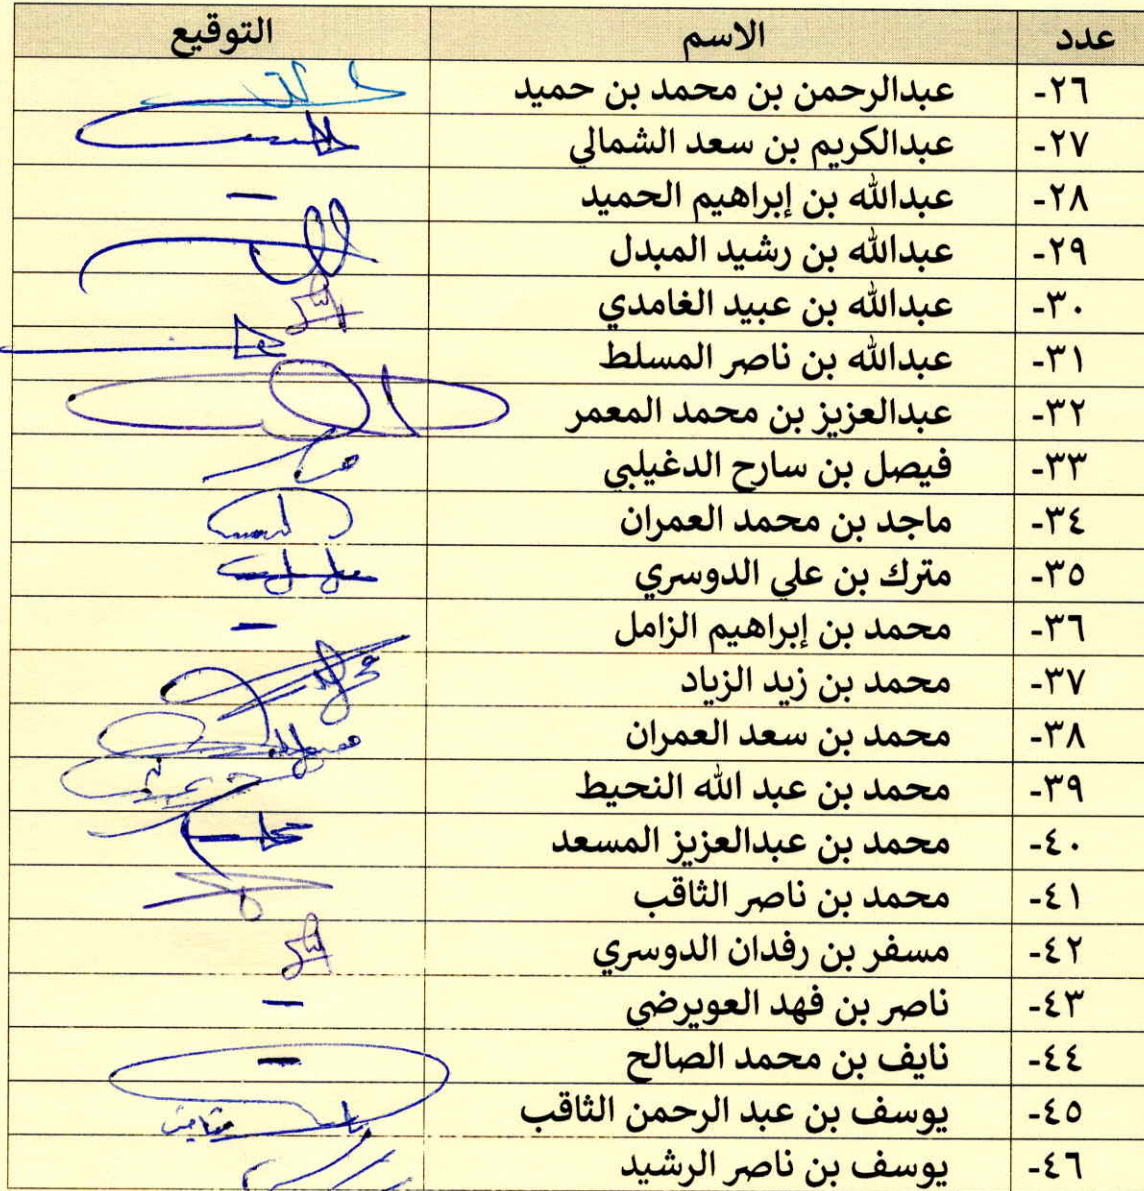 عدد الاسم التوقيع
٢٦- عبدالرحمن بن محمد بن حميد
٢٧- عبدالكريم بن سعد الشمالي
٢٨- عبدالله بن إبراهيم الحميد -
٢٩- عبدالله بن رشيد المبدل
٣٠- عبدالله بن عبيد الغامدي
٣١- عبدالله بن ناصر المسلط
٣٢- عبدالعزيز بن محمد المعمر
٣٣- فيصل بن سارح الدغيلبي
٣٤- ماجد بن محمد العمران
٣٥- مترك بن علي الدوسري
٣٦- محمد بن إبراهيم الزامل -
٣٧- محمد بن زيد الزياد
٣٨- محمد بن سعد العمران
٣٩- محمد بن عبد الله النحيط
٤٠- محمد بن عبدالعزيز المسعد
٤١- محمد بن ناصر الثاقب
٤٢- مسفر بن رفدان الدوسري
٤٣- ناصر بن فهد العويرضي -
٤٤- نايف بن محمد الصالح -
٤٥- يوسف بن عبد الرحمن الثاقب
٤٦- يوسف بن ناصر الرشيد